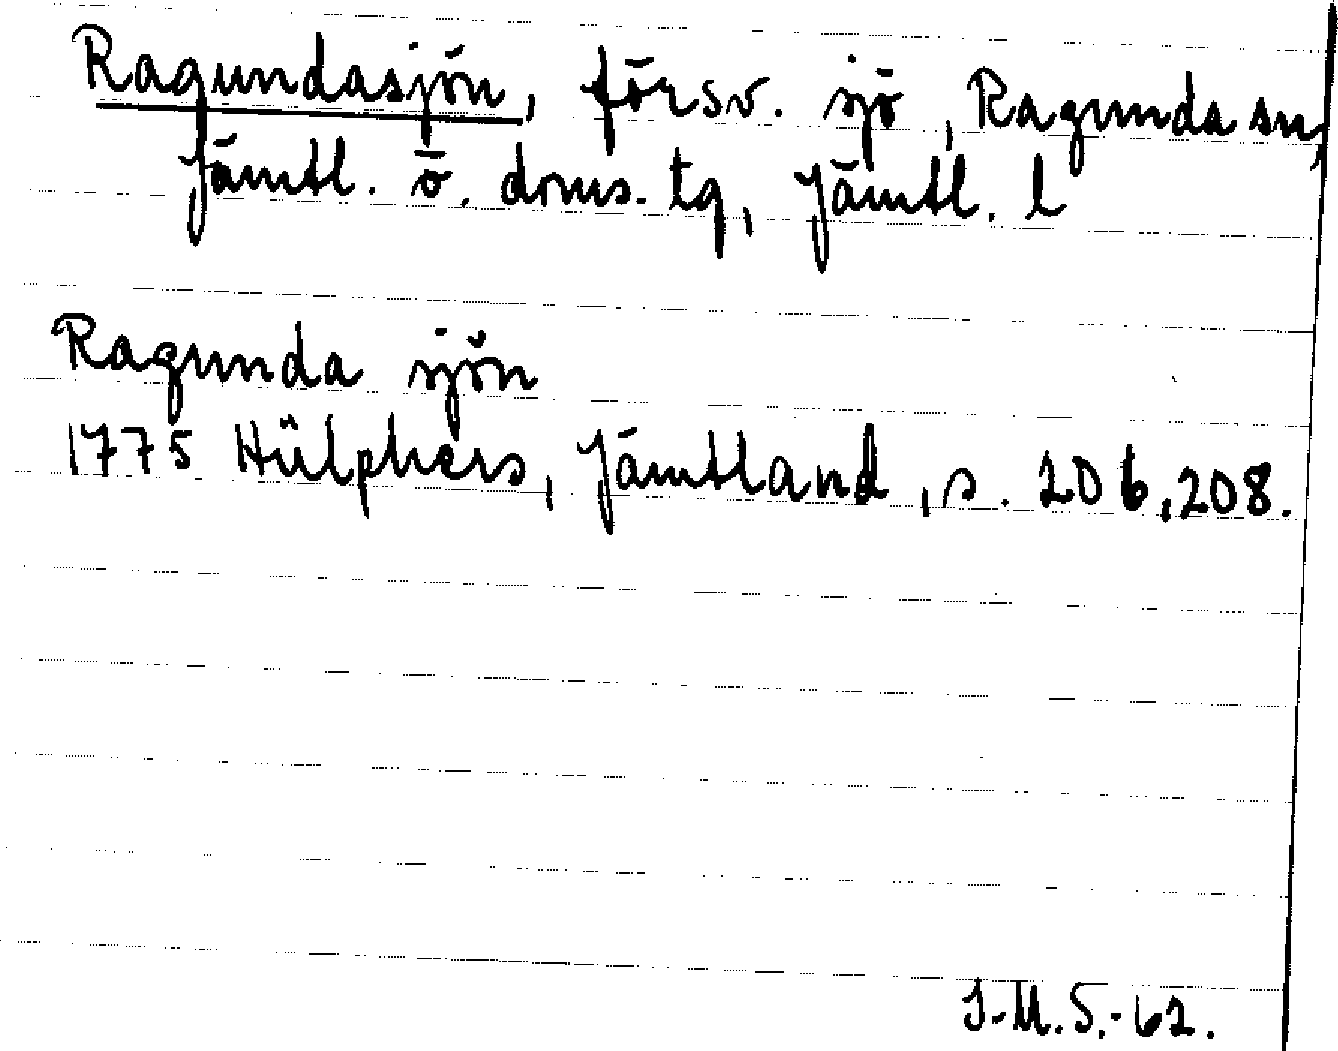 Ragundasjön, försv. sjö, Ragunda sn,
Jämtl. ö. doms. tg, Jämtl. l
Ragunda sjön
1775 Hülphers, Jämtland, s. 206, 208.
I-M.S.-62.